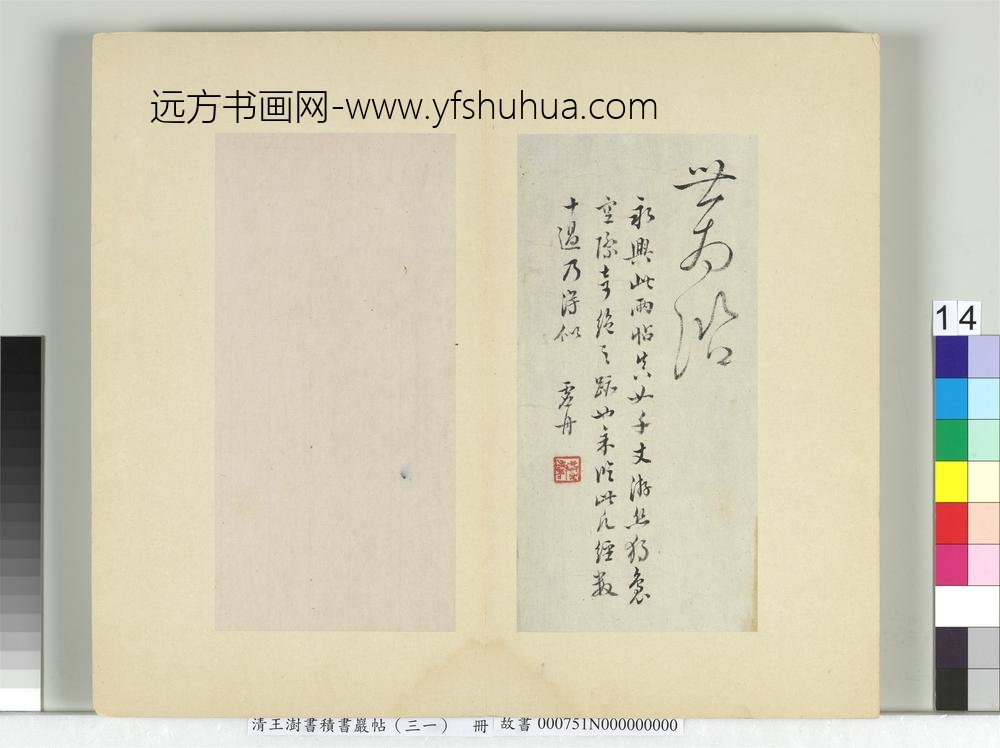 远方书画网-www.yfshuhua.com
永興此兩帖真如千丈游絲獨裊
空際奇絕之跡也余臨此凡經數
十過乃得似 虛舟
14
清王澍書積書巖帖（三一） 冊 故書 000751N000000000